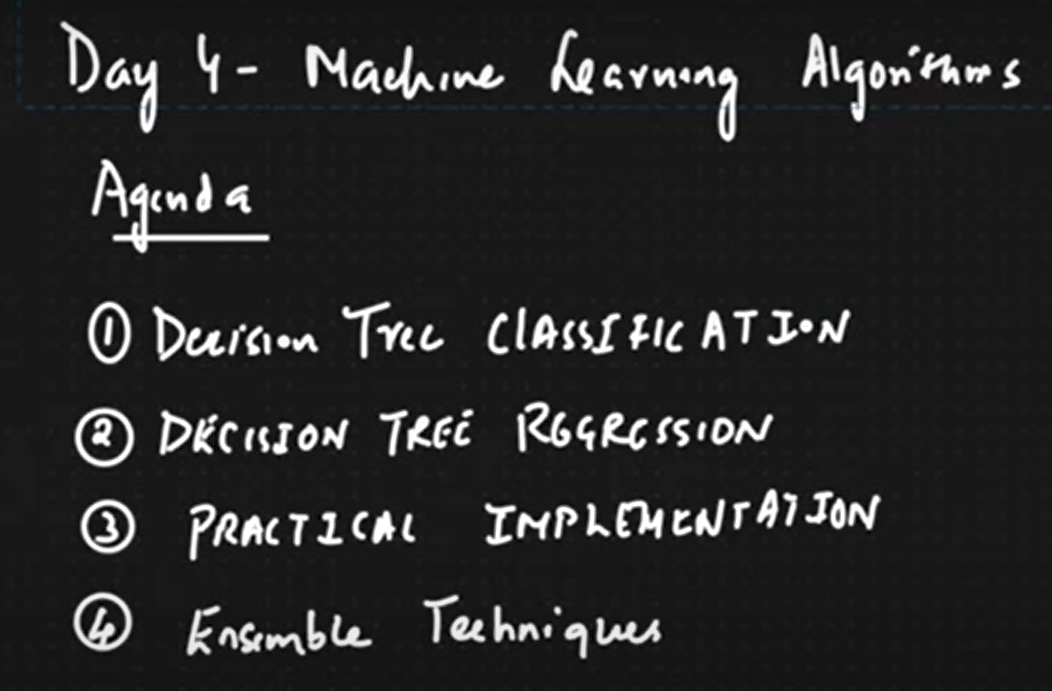 Day 4- Machine Learning Algorithms
Agenda
① Decision Tree CLASSIFICATION
② DECISION TREE REGRESSION
③ PRACTICAL IMPLEMENTATION
④ Ensemble Techniques